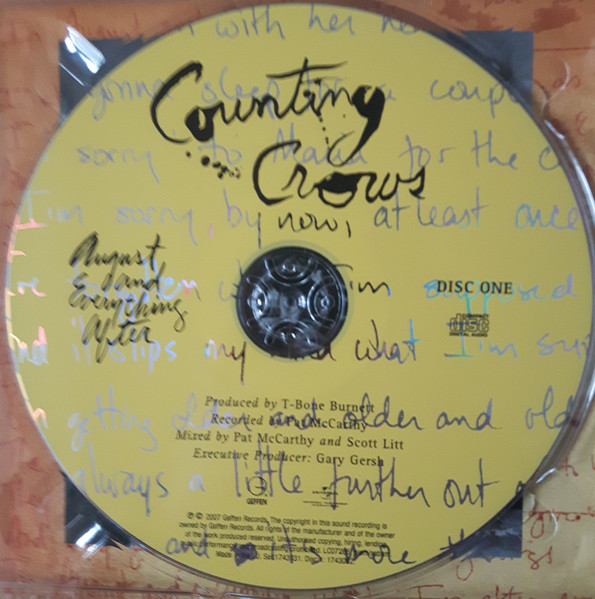 with her
gonna sleep for a couple
Counting
Crows
sorry" to Maria for the
I'm sorry, by now, at least once
August
and
Everything
After
DISC ONE
COMPACT
disc
DIGITAL AUDIO
I'm supposed
and it slips my mind what I'm
Produced by T-Bone Burnett
Recorded by Pat McCarthy
getting older and older and old
Mixed by Pat McCarthy and Scott Litt
Executive Producer: Gary Gersh
always a little further out
GEFFEN
℗ © 2007 Geffen Records. The copyright in this sound recording is
owned by Geffen Records. All rights of the manufacturer and of the owner
of the work produced reserved. Unauthorised copying, hiring, lending,
public performance and broadcasting prohibited.
and so it's more